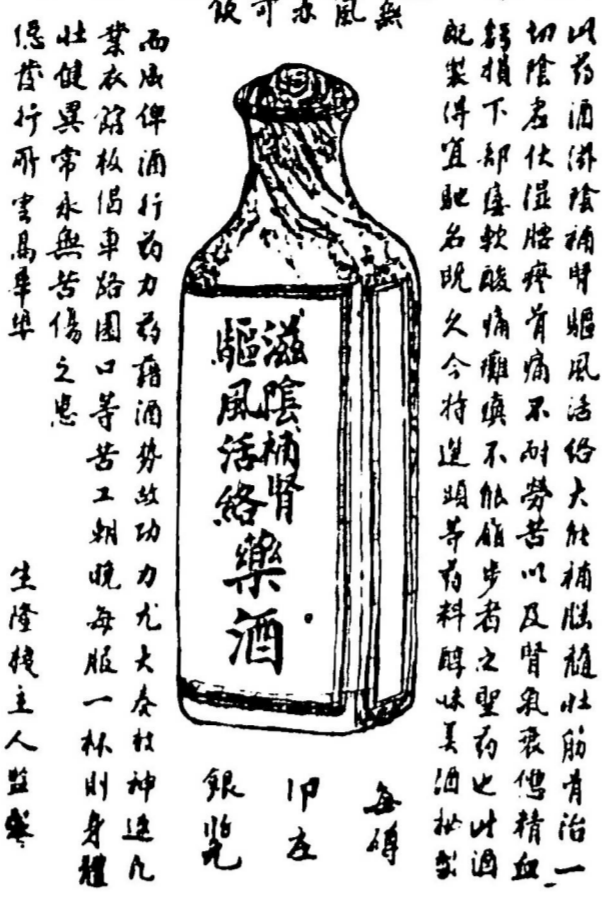 無風亦可
此药酒滋陰補腎驅風活络大能補腦髓壯筋骨治一
切陰虚伏濕腰疼骨痛不耐勞苦以及腎氣衰憊精血
虧損下部痿軟酸痛癱瘓不能履步者之聖药也此酒
配製得宜馳名既久今特選頭等药料醇味美酒製
滋陰補腎
驅風活絡
藥酒
每磚
銀
而成俾酒行药力药藉酒势故功力尤大奏效神速凡
業衣館板偈車路園口等苦工朝晚每服一杯則身體
壯健異常永無苦傷之患
發行所雲高華埠
生隆棧主人監製